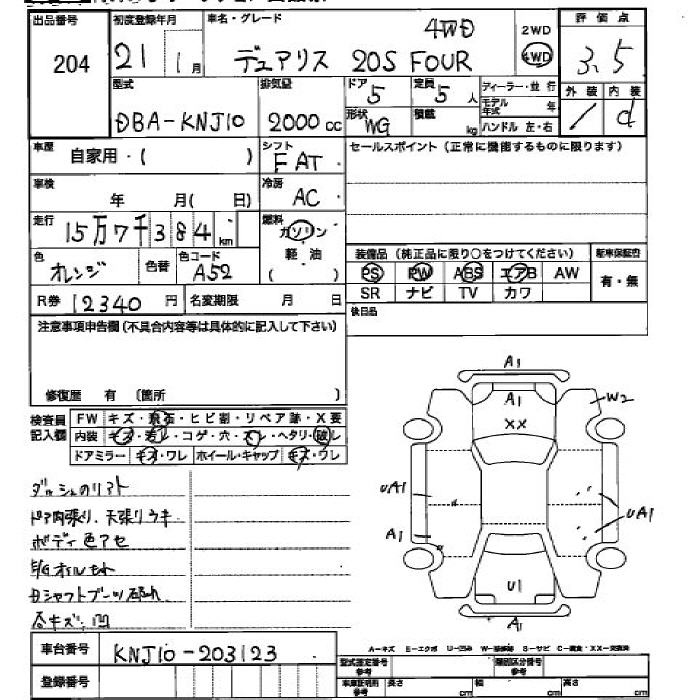 出品番号
204
初度登録年月
21 1月
車名・グレード
デュアリス 20S FOUR 4WD
2WD
4WD
評価点
3.5
外装 内装
d
型式
DBA-KNJ10
排気量
2000 cc
ドア
5
定員
5人
形状
WG
積載
kg
ディーラー・並行
モデル年式 年
ハンドル 左・右
車歴
自家用・( )
シフト
FAT
セールスポイント(正常に機能するものに限ります)
車検
年 月( 日)
冷房
AC
走行
15万7千384 km
燃料
ガソリン
軽油
( )
色
オレンジ
色替
色コード
A52
装備品(純正品に限り○をつけてください)
PS PW ABS エアB AW
SR ナビ TV カワ
新車保証書
有・無
R券 12340円
名変期限 月 日
後日品
注意事項申告欄(不具合内容等は具体的に記入して下さい)
修復歴 有 〔箇所 〕
検査員記入欄
FW キズ・飛石・ヒビ割・リペア跡・X要
内装 キズ・汚レ・コゲ・穴・スレ・ヘタリ・破レ
ドアミラー キズ・ワレ ホイール・キャップ キズ・ワレ
ダッシュのリフト
ドア内張り、天張りウキ
ボディ色アセ
E/Gオイルもれ
Dシャフトブーツ破れ
各キズ、凹
A1
A1
XX
W2
UA1
A1
UA1
U1
A1
A-キズ E-エクボ U-凹み W-補修跡 S-サビ C-腐食・XX-交換済
車台番号
KNJ10-203123
登録番号
型式指定番号
参考
類別区分番号
参考
車庫証明用
参考
長さ cm
幅 cm
高さ cm